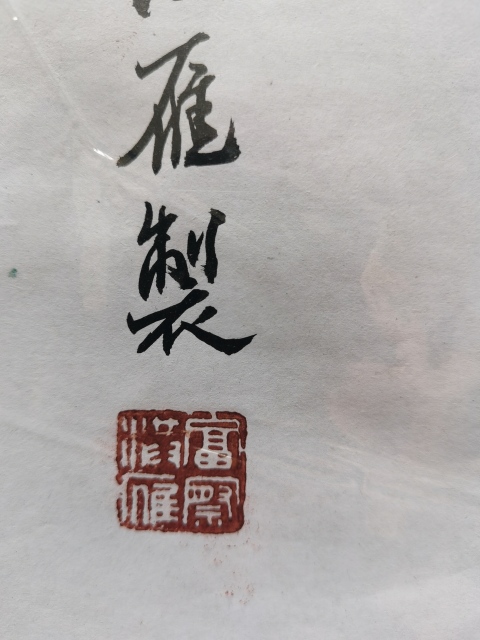 雁製
富察
雁